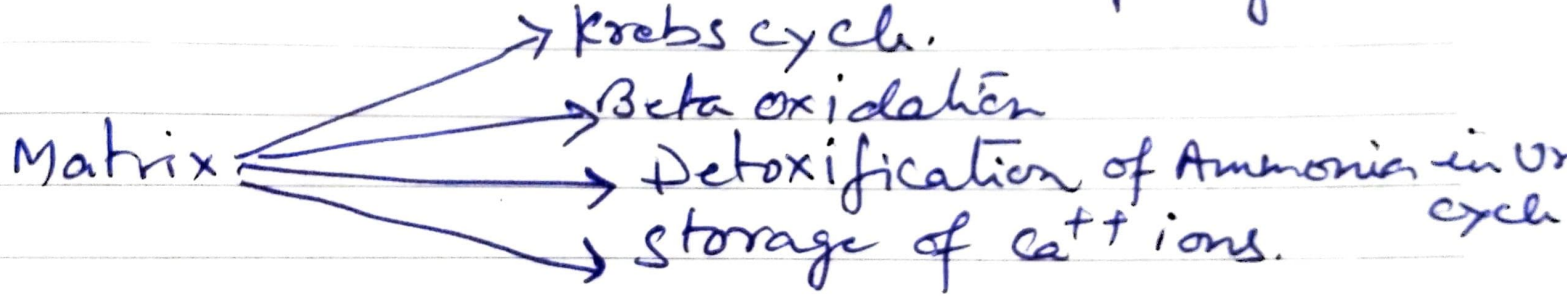 Krebs cycle.
Beta oxidation
Matrix
Detoxification of Ammonia in
cycle
Storage of Ca++ ions.